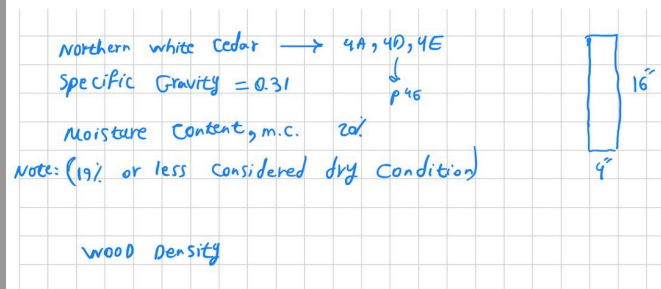 Northern white Cedar → 4A, 4D, 4E
↓
P46
Specific Gravity = 0.31
16"
Moisture Content, m.c. 20%
Note: (19% or less considered dry condition)
4"
WOOD Density